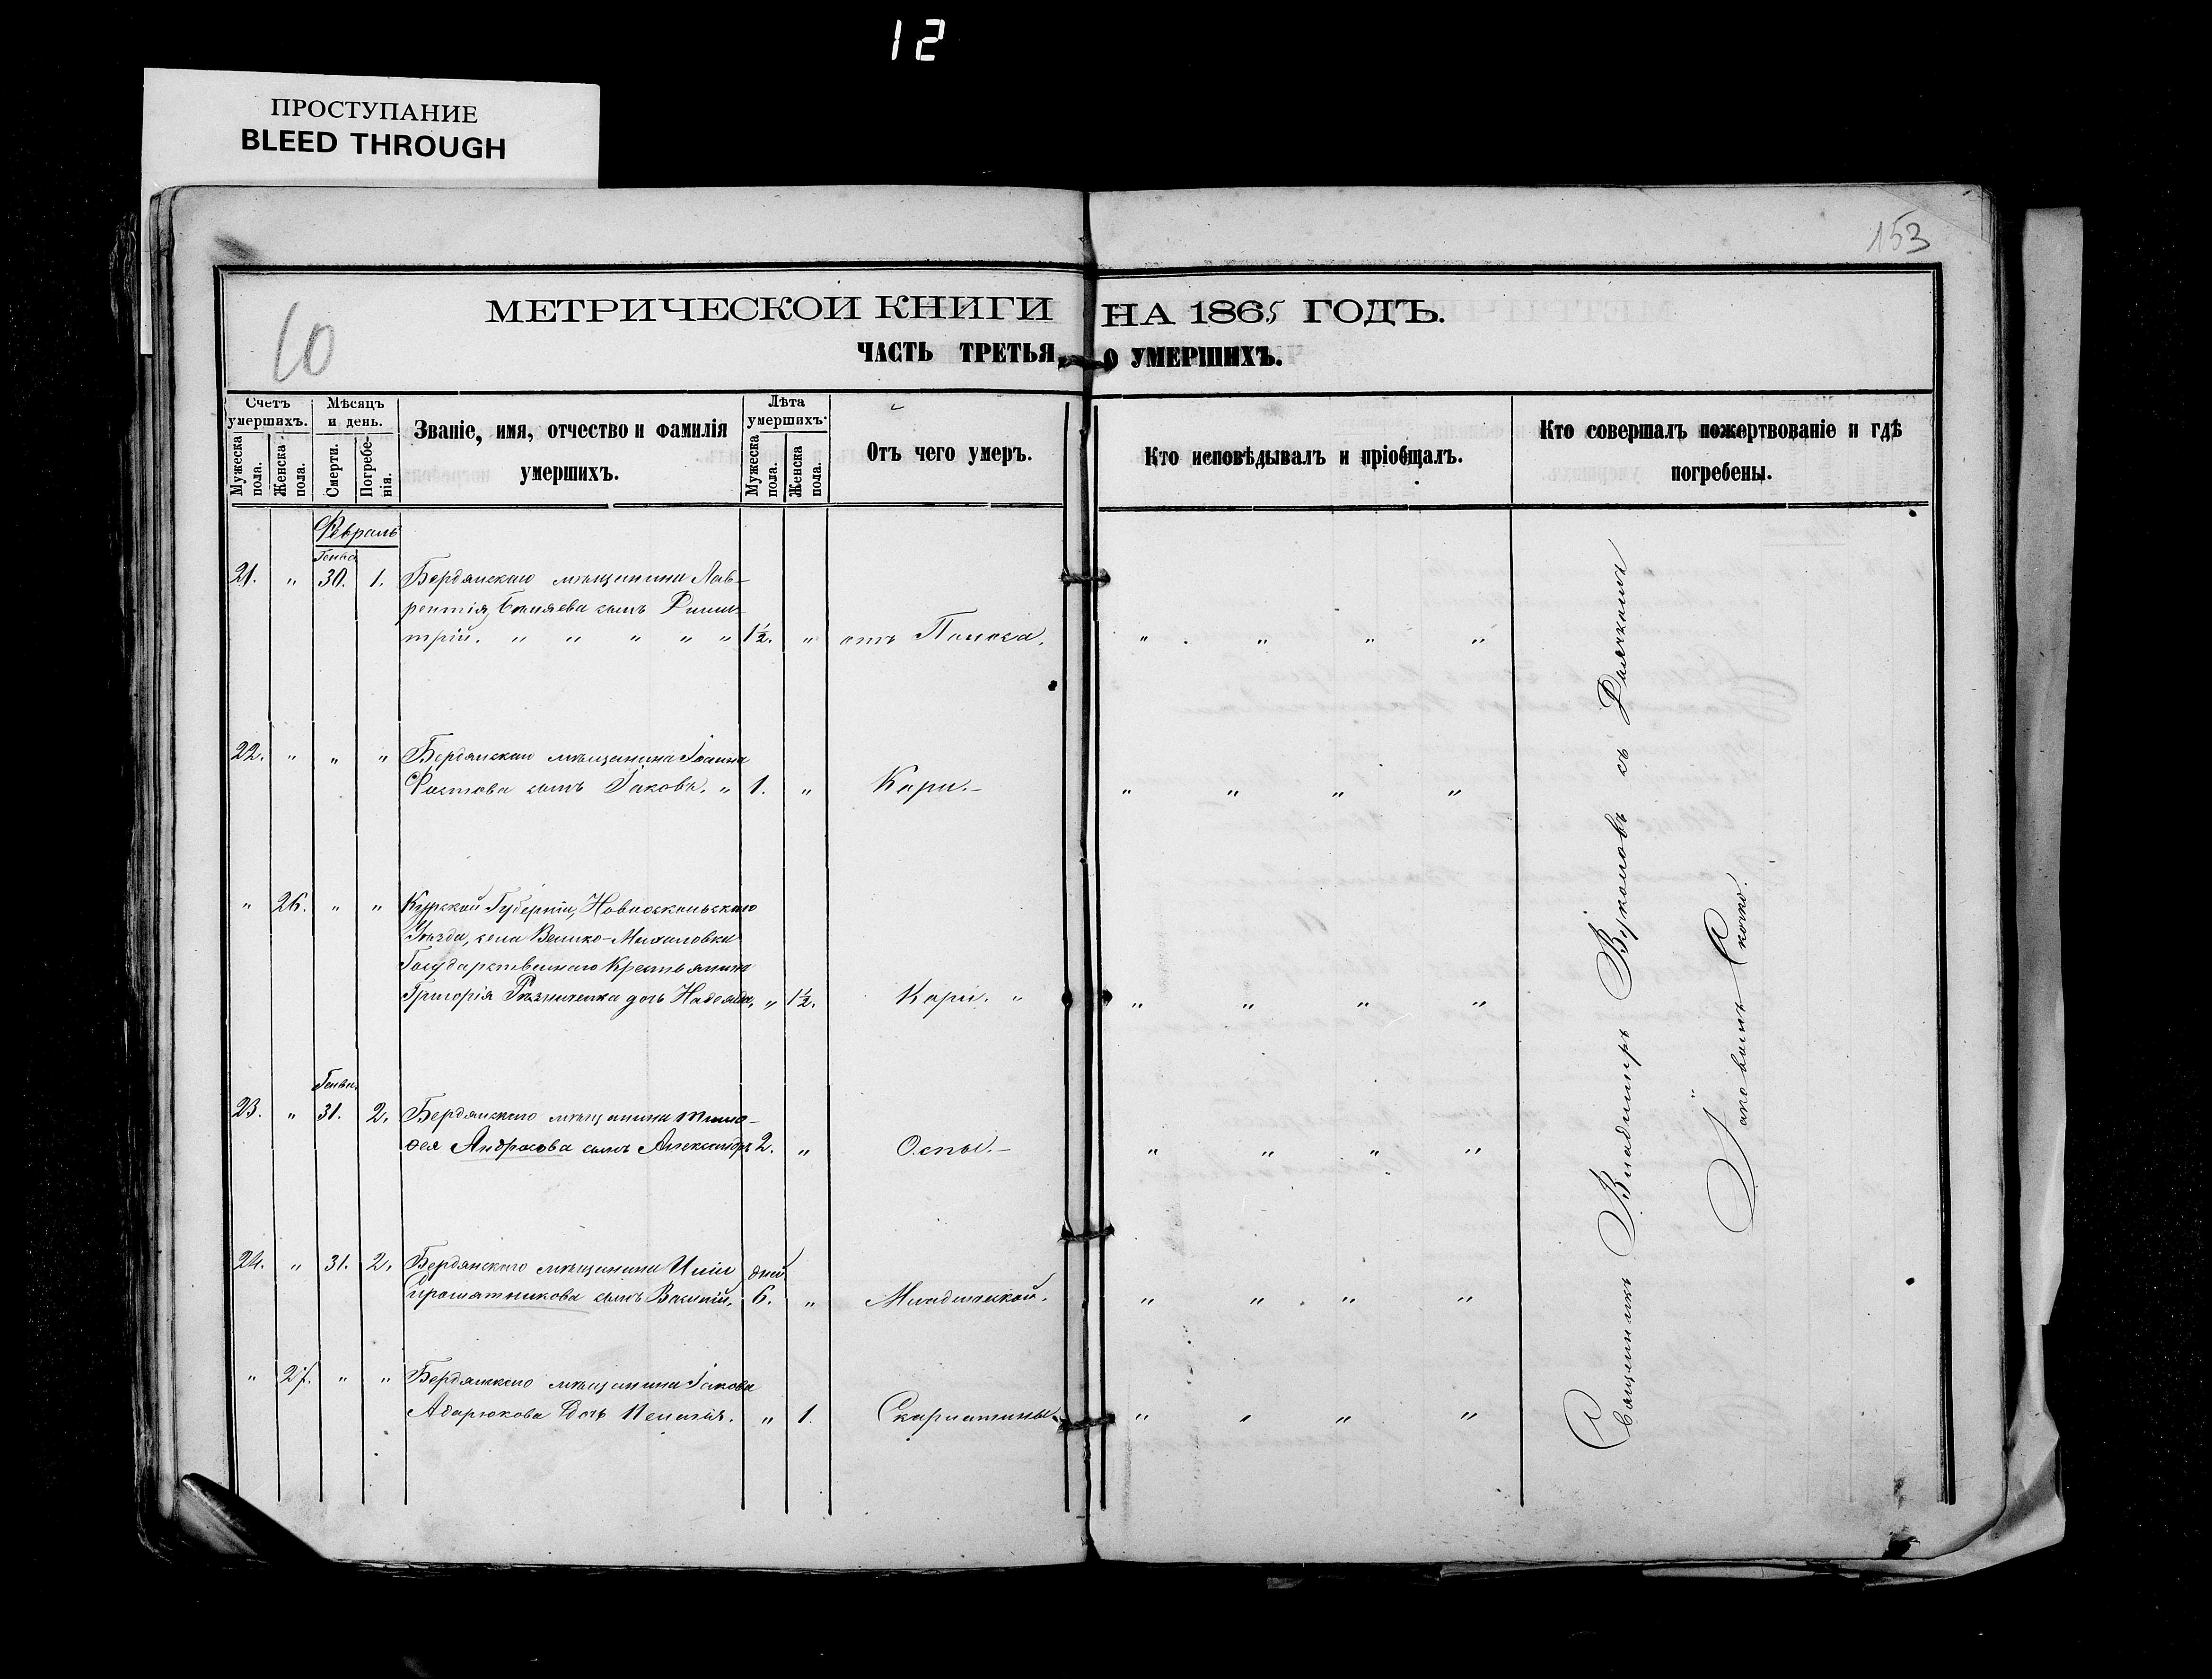 12
ПРОСТУПАНИЕ
BLEED THROUGH
153
10
МЕТРИЧЕСКОЙ КНИГИ НА 1865 ГОДЪ.
ЧАСТЬ ТРЕТЬЯ, О УМЕРШИХЪ.
Счетъ умершихъ.
Мужеска пола.
Женска пола.
Мѣсяцъ и день.
Смерти.
Погребенія.
Званіе, имя, отчество и фамилія
умершихъ.
Лѣта умершихъ
Мужеска пола.
Женска пола.
Отъ чего умеръ.
Кто исповѣдывалъ и пріобщалъ.
Кто совершалъ пожертвованіе и гдѣ
погребены.
Февраль
21. " 30. 1. Бердянскаго мѣщанина Лав-
рентія сынъ Дими-
трій. " " " " " 1½. " отъ Поноса. " " " "
22. " " " Бердянскаго мѣщанина Іоанна
сынъ Іаковъ. " 1. " Кори. " " " "
" 26. " " Курской Губерніи, Новооскольскаго
Уѣзда, села Велико-Михаловки
Государственнаго Крестьянина
Григорія Рѣзниченка дочь Надежда. " 1½. Кори. " " " " "
Генв.
23. " 31. 2. Бердянскаго мѣщанина Тимо-
фея Андросова сынъ Александръ 2. " Оспы. " " " "
24. " 31. 2. Бердянскаго мѣщанина Иліи дней
сынъ Василій. 6. " Младенческой. " " " "
" 27. " " Бердянскаго мѣщанина Іакова
Абарюкова дочь Пелагія. " 1. Скарлатины. " " " "
Священникъ Владимиръ Вуколовъ съ Дьячкомъ